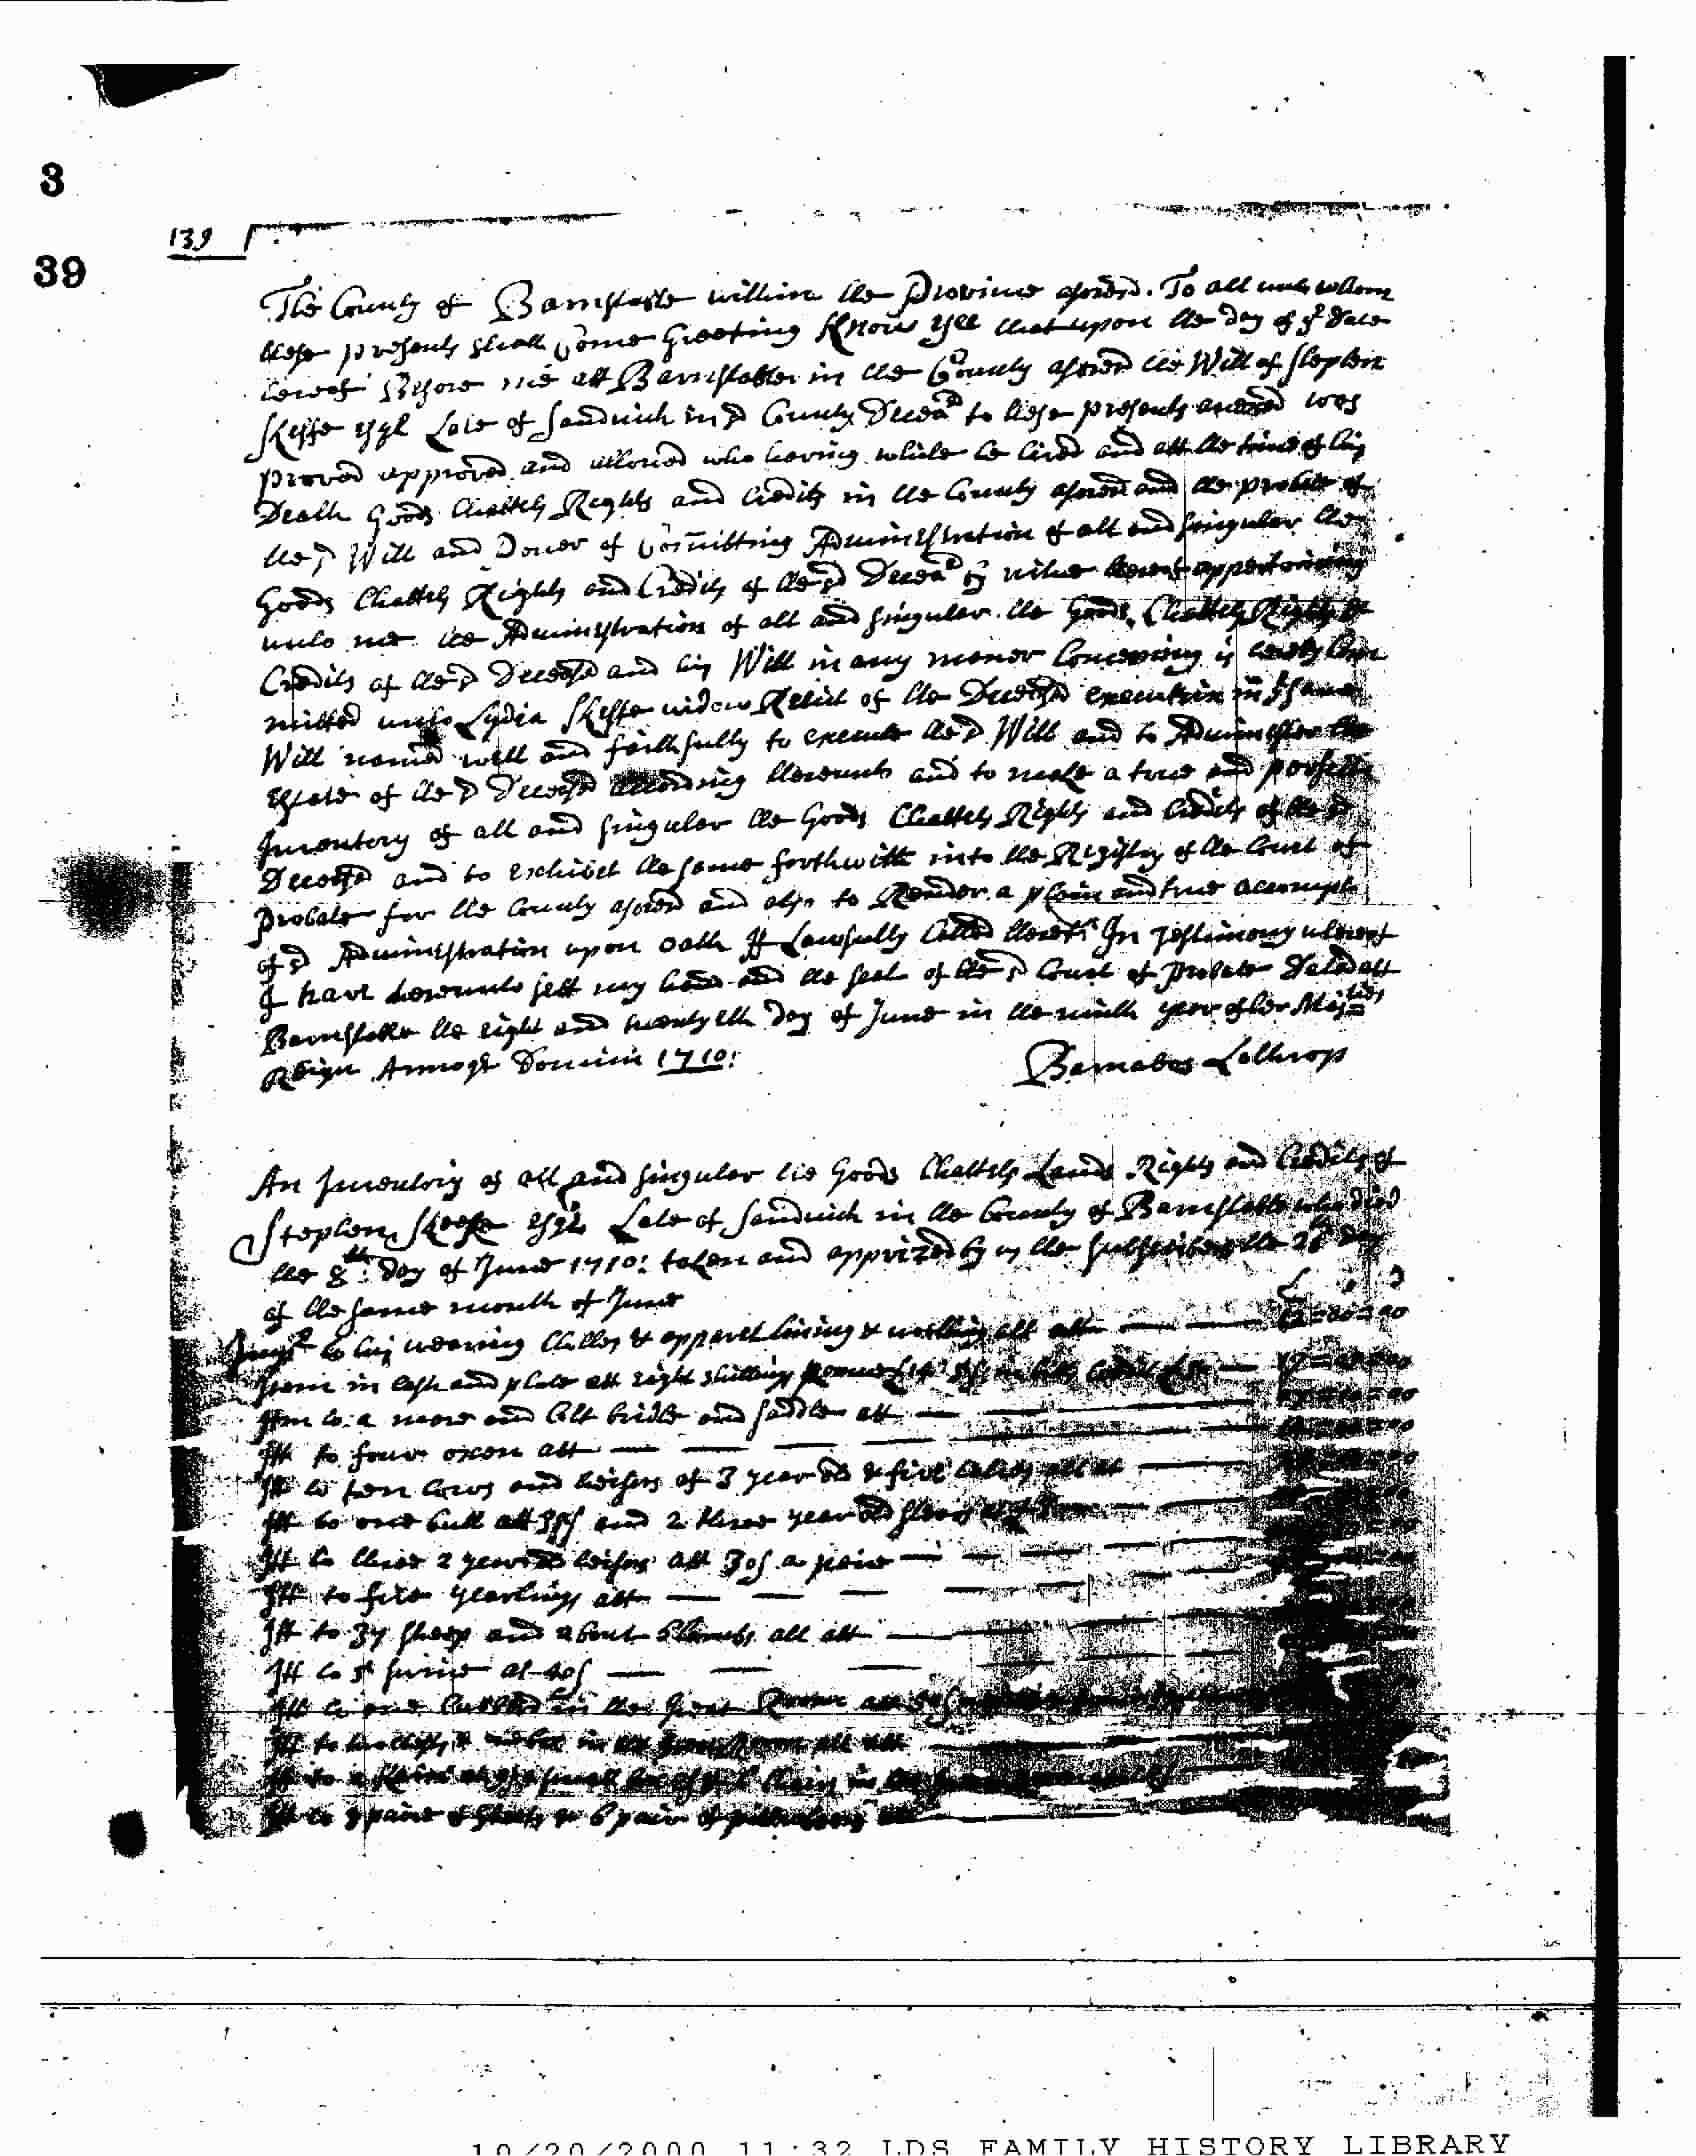 3
39
139
The County of Barnstable within the Province aforesd. To all unto whom
these presents shall Come Greeting Know yee that upon the day of ye Date
hereof Before me att Barnstable in the County aforesd the Will of Stephen
Skeffe Esqr Late of Sandwich in sd County Deceasd to these presents annexed was
proved approved and allowed who having while he lived and att the time of his
Death Goods Chattels Rights and Credits in the County aforesd and the probate of
the sd Will and Power of Comitting Administration of all and singular the
Goods Chattels Rights and Credits of the sd Deceasd by virtue thereof appertaining
unto me the Administration of all and singular the Goods Chattels Rights &
Credits of the sd Deceased and his Will in any maner Concerning is hereby Com
mitted unto Lydia Skeffe widow Relict of the Deceased executrix in ye same
Will named well and faithfully to execute the sd Will and to Administer the
Estate of the sd Deceased according thereunto and to make a true and perfect
Inventory of all and singular the Goods Chattels Rights and Credits of the sd
Deceased and to exhibet the same forthwith into the Registry of the Court of
Probate for the County aforesd and also to Render a plain and true accompt
of sd Administration upon oath If Lawfully Called thereto In Testimony whereof
I have hereunto sett my hand and the seal of the sd Court of Probate Dated att
Barnstable the eight and twentyeth day of June in the ninth year of her Majties
Reign Annoqe Domini 1710:
Barnabas Lothrop
An Inventory of all and singular the Goods Chattels Lands Rights and Credits of
Stephen Skeefe Esqr Late of Sandwich in the County of Barnstable who died
the 8th: day of June 1710: taken and apprized by us the subscribers the 28th day
of the same month of June
£ s d
to his wearing Clothes & apparel lining & wolling all att
Item in cash and plate att eight shillings
Itm to a mare and Colt bridle and saddle att
Itt to four oxen att
Itt to ten cows and heifers of 3 year old & five calves all at
Itt to one bull att 35s and 2 three year old steers
Itt to three 2 year old heifers att 30s a peice
Itt to five yearlings att
Itt to 37 sheep and about lambs all att
Itt to 5 swine at 40s
Itt to one in the Great Room att
Itt to in the all att
Itt to a small chairs in
Itt to paire of sheets & 6 pair of
10/20/2000 11:32 LDS FAMILY HISTORY LIBRARY